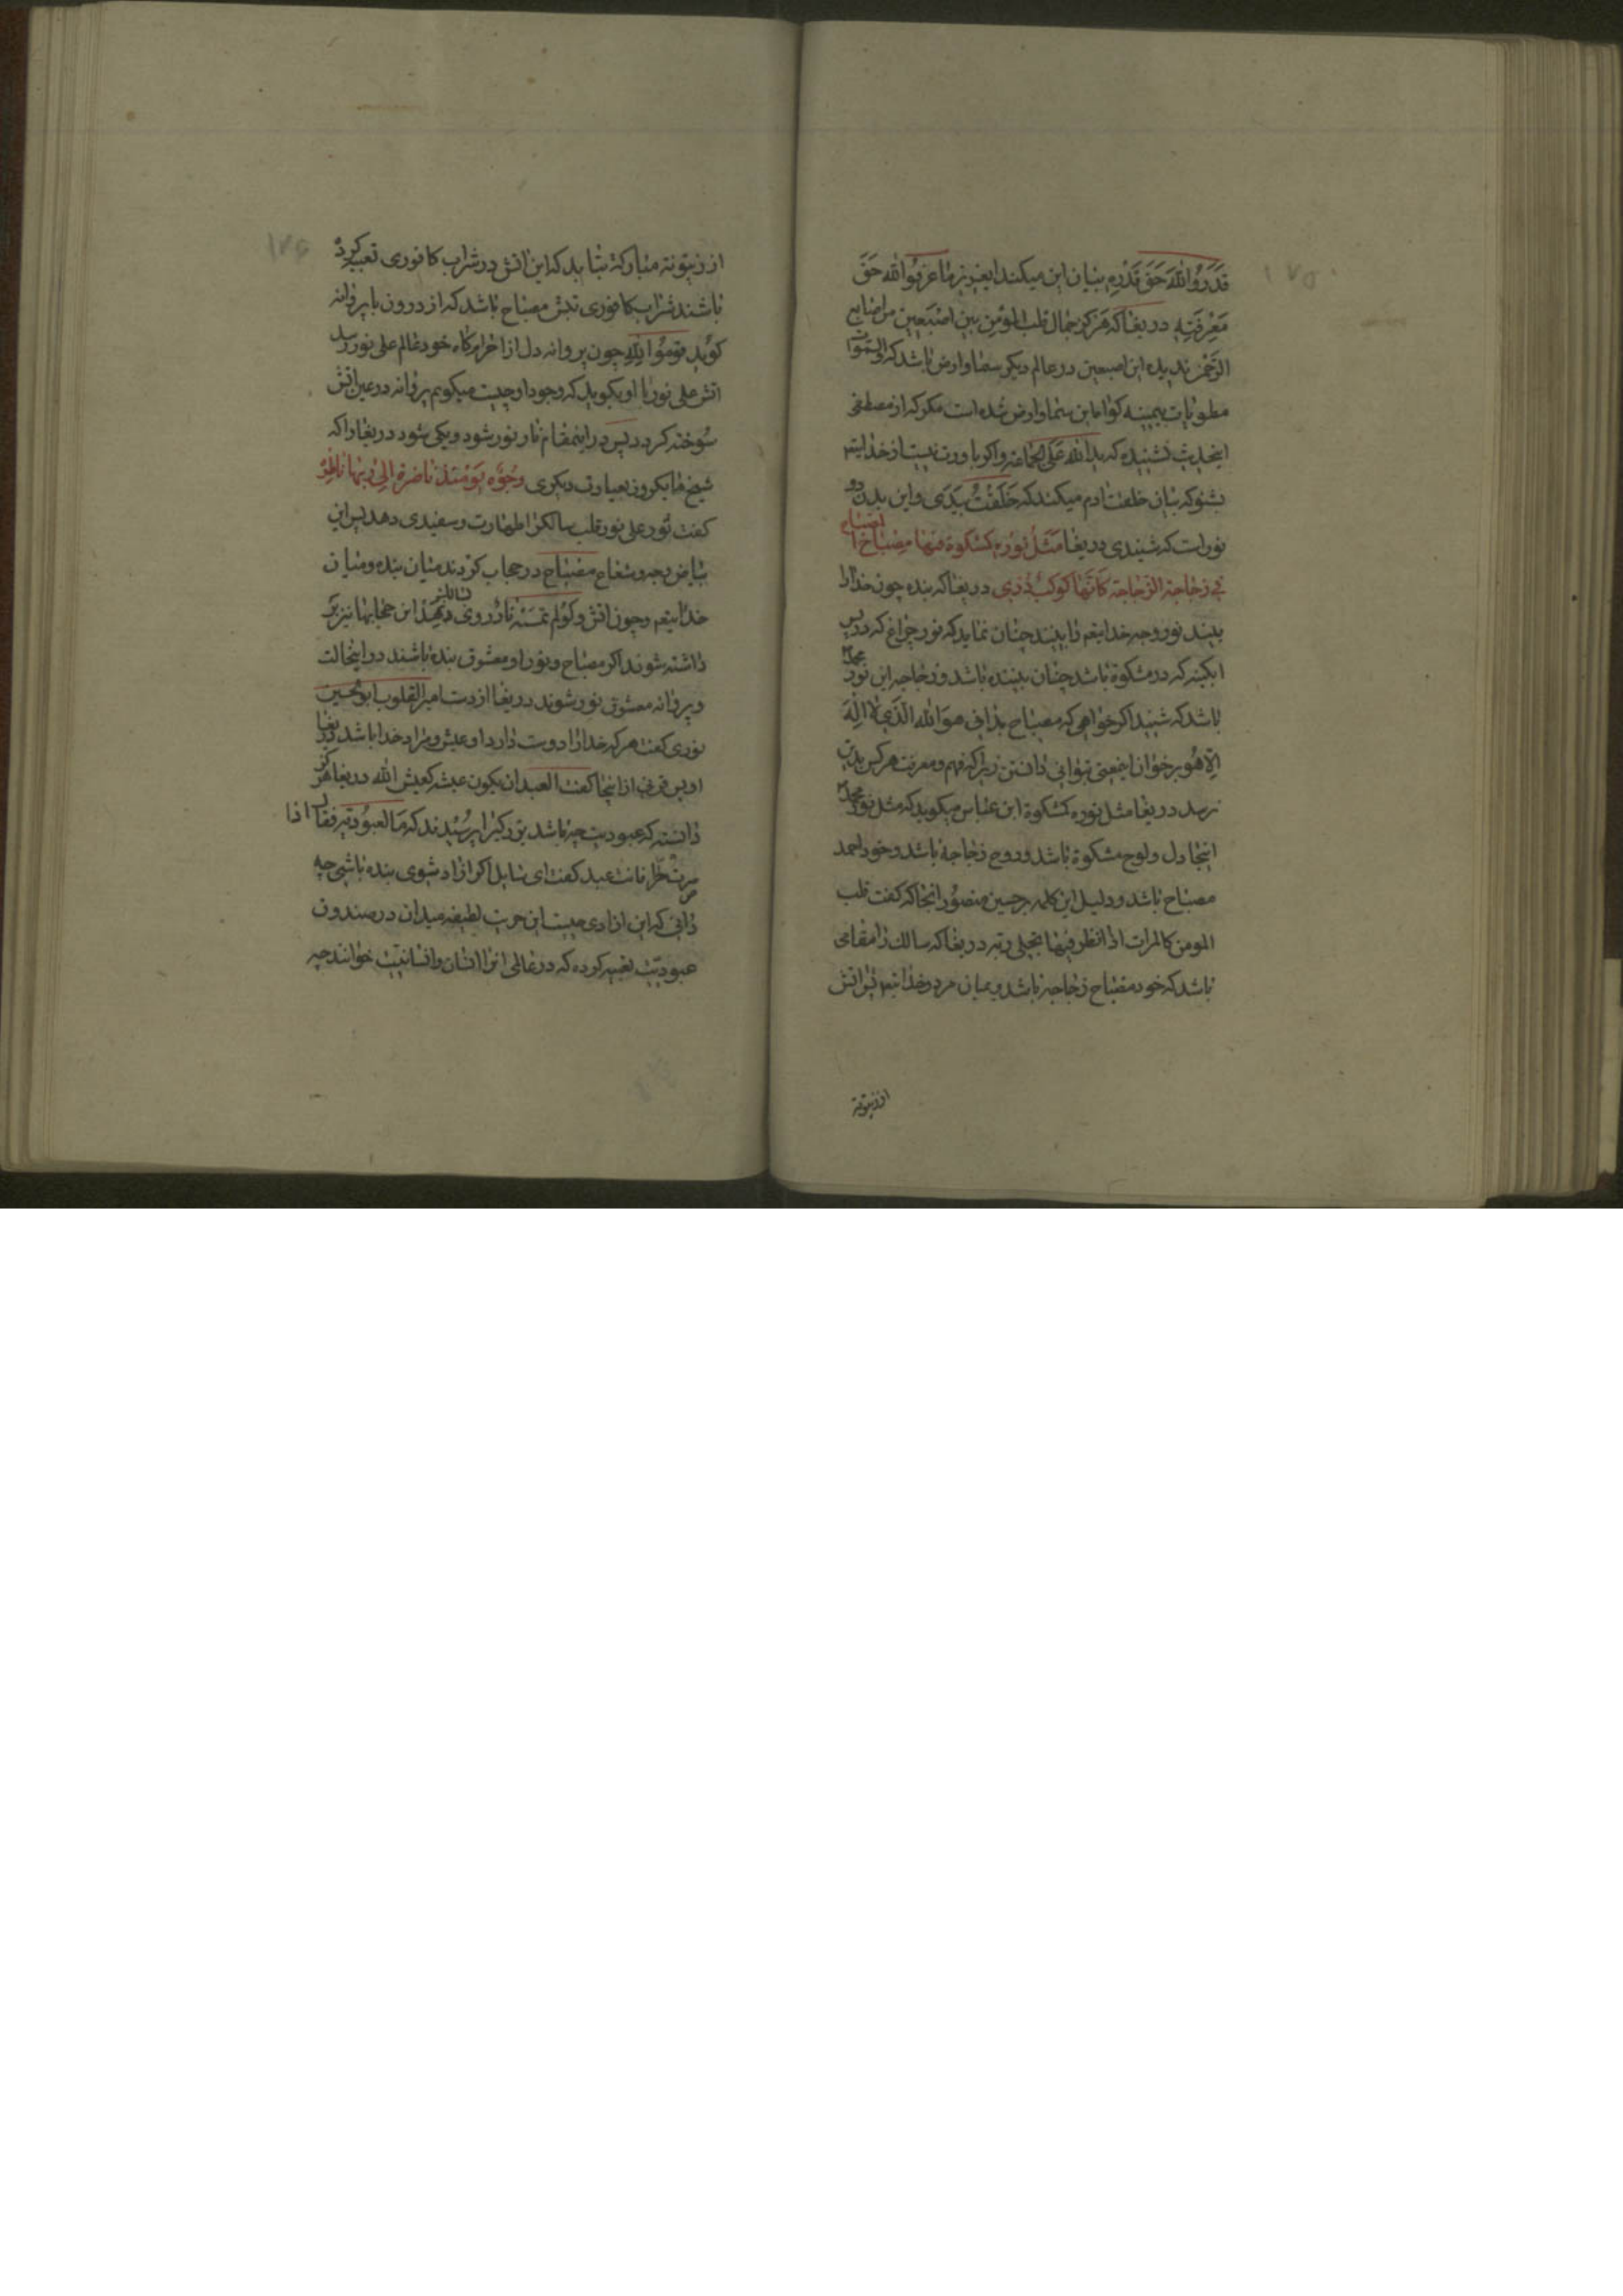 قَدَرُوا اللهَ حَقَّ قَدْرِهِ بیان این میکند ایعزیز ما عرفوا الله حَقَّ
مَعْرِفَتِهِ دریغا که هرگز جمال قلب المؤمن بین اصبعین من اصابع
الرحمن ندیده این اصبعین در عالم دیگر سما و ارض باشد که والسموات
مطویات بیمینه کواه این سما و ارض شده است مکر که از مصطفی
اینحدیث نشنیده که ید الله علی الجماعة واکر باورت نیست از خدایتعم
بشنو که بیان خلقت ادم میکند که خَلَقْتُ بِیَدَیَّ واین یدین دو
نور است که شنیدی دریغا مَثَلُ نُورِهِ کَمِشکوة فیها مصباح المصباح
فی زجاجة الزجاجة کَاَنَّها کوکب دُرّی دریغا که بنده چون خدا را
بیند نور وجه خدایتعم را بیند چنان نماید که نور چراغ که در پس
ابکینه که در مشکوة باشد چنان بیننده باشد و زجاجه این نور محمد
باشد که شنید اکر خواهی که مصباح بدانی هو الله الذی لا اله
الا هو برخوان اینمعنی توانی دانستن زیرا که فهم و معرفت هر کس بدین
نرسد دریغا مثل نوره کمشکوة ابن عباس میکوید که مثل نور محمد
اینجا دل و لوح مشکوة باشد و روح زجاجه باشد و خود احمد
مصباح باشد و دلیل این کلمه بر حسین منصور انجا که کفت قلب
المومن کالمرات اذا نظر فیها تجلی ربه دریغا که سالک را مقامی
باشد که خود مصباح زجاجه باشد و میان مرد و خدایتعم تراتش
از زیتونة
از زیتونة مبارکة بتابد که این اتش در شراب کافوری تعبیه کرد
باشند شراب کافوری تبش مصباح باشد که از درون با پروانه
کوید قوموا لله چون پروانه دل از احرامکاه خود عالم علی نور رسد
اتش علی نور با او بکوید که وجود او چیست میکویم پروانه در عین اتش
سوخته کردد پس در اینمقام نار نور شود و یکی شود دریغا واکه
شیخ ما یکروز بعبارت دیکری وجوه یومئذ ناضرة الی ربها ناظرة
کفت نور علی نور قلب سالک را طهارت و سفیدی دهد پس این
بیاض وجه و شعاع مصباح در حجاب کردند میان بنده و میان
خدایتعم و چون اتش ولو لم تمسسه نار روی دهد این حجابها نیز بر
داشته شوند اکر مصباح و نور او معشوق بنده باشند در اینحالت
و پروانه معشوق نور شوند دریغا از دست امیر القلوب ابو الحسین
نوری کفت هر که خدا را دوست دارد او عیش و مراد خدا باشد دریغا
اویس قرنی از اینجا کفت العبد ان یکون عیشه کعیش الله دریغا هرکز
دانسته که عبودیت چه باشد بزرکی را پرسیدند که ما العبودیة فقال اذا
صرت حرا فانت عبد کفت ای سایل اکر ازاد شوی بنده باشی چه
دانی که این ازادی چیست این حریت لطیفه میدان در صندوق
عبودیت تعبیه کرده که در عالمی انرا انسان و انسانیت خوانند چه